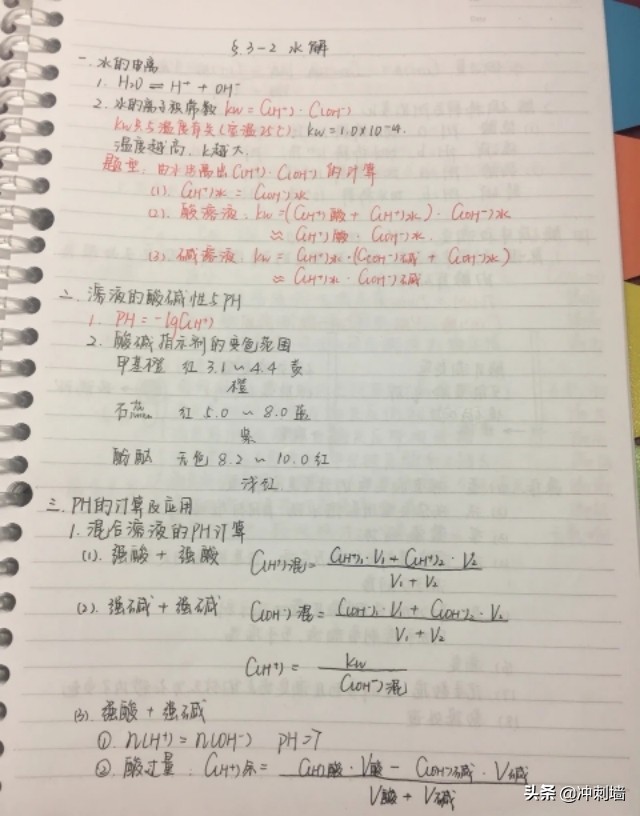 §.3-2 水解
一.水的电离
1. H₂O ⇌ H⁺ + OH⁻
2. 水的离子积常数 kw = C(H⁺)·C(OH⁻)
kw只与温度有关(室温25℃) kw=1.0×10⁻⁴.
温度越高，k越大.
题型：由水电离出C(H⁺)·C(OH⁻)的计算
(1). C(H⁺)水 = C(OH⁻)水
(2). 酸溶液：kw=(C(H⁺)酸 + C(H⁺)水)·C(OH⁻)水
≈ C(H⁺)酸·C(OH⁻)水.
(3). 碱溶液：kw = C(H⁺)水·(C(OH⁻)碱 + C(OH⁻)水)
≈ C(H⁺)水·C(OH⁻)碱
二、溶液的酸碱性与PH
1. PH = -lgC(H⁺)
2. 酸碱指示剂的变色范围
甲基橙 红 3.1 ~ 4.4 黄
橙
石蕊 红 5.0 ~ 8.0 蓝
紫
酚酞 无色 8.2 ~ 10.0 红
浅红
三、PH的计算及应用
1. 混合溶液的PH计算
(1). 强酸 + 强酸 C(H⁺)混 = C(H⁺)₁·V₁ + C(H⁺)₂·V₂ / V₁ + V₂
(2). 强碱 + 强碱 C(OH⁻)混 = C(OH⁻)₁·V₁ + C(OH⁻)₂·V₂ / V₁ + V₂
C(H⁺) = kw / C(OH⁻)混
(3). 强酸 + 强碱
①. n(H⁺) = n(OH⁻) PH=7
②. 酸过量：C(H⁺)余 = C(H⁺)酸·V酸 - C(OH⁻)碱·V碱 / V酸 + V碱
头条 @冲刺墙